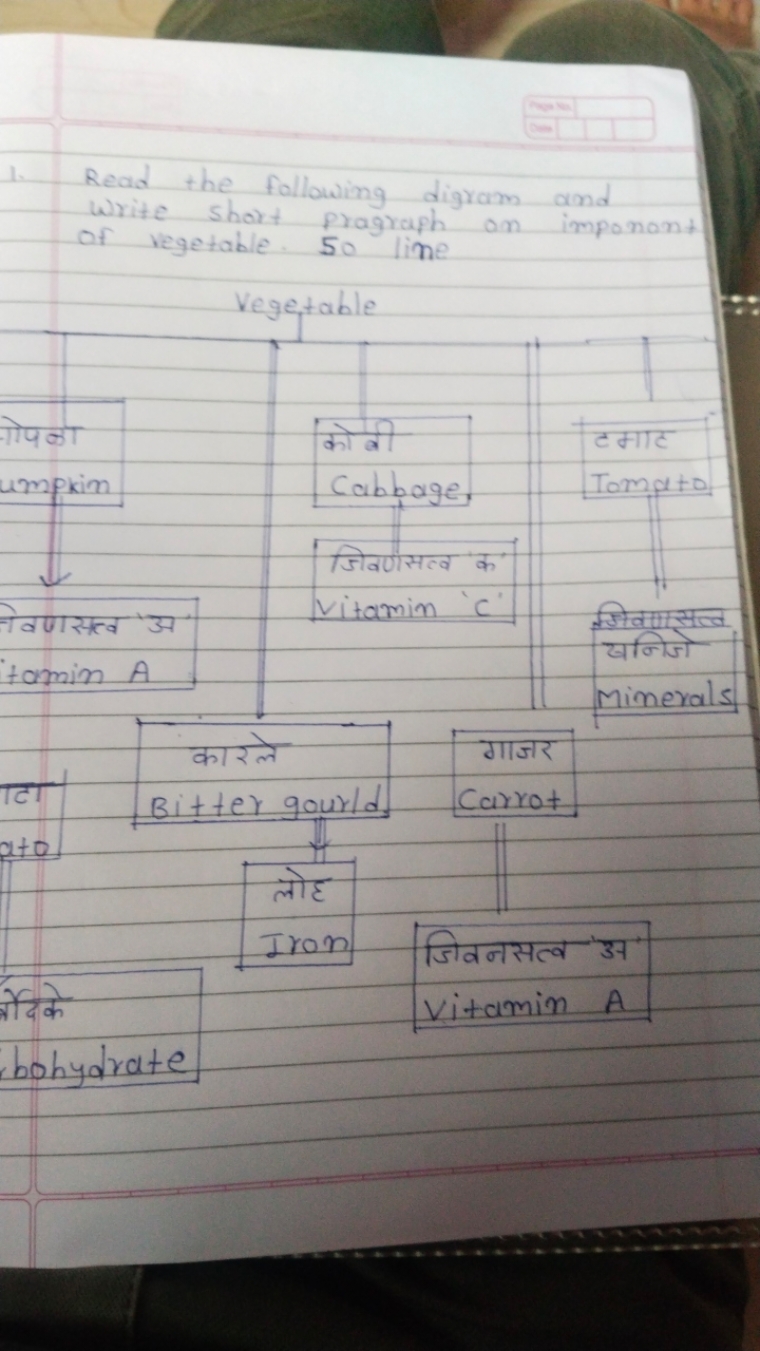 Page No.
Date
1. Read the following digram and
write short pragraph on imponont
of vegetable. 50 line
Vegetable
कोबी
Cabbage
टमाट
Tomato
umpkin
जिवणसत्व 'क'
Vitamin 'C'
जिवणसत्व
खनिजे
Minerals
िवणसत्व 'अ'
itamin A
कारले
Bitter gourld
गाजर
Carrot
ाटा
ato
लोह
Iron
जिवनसत्व 'अ'
Vitamin A
bohydrate